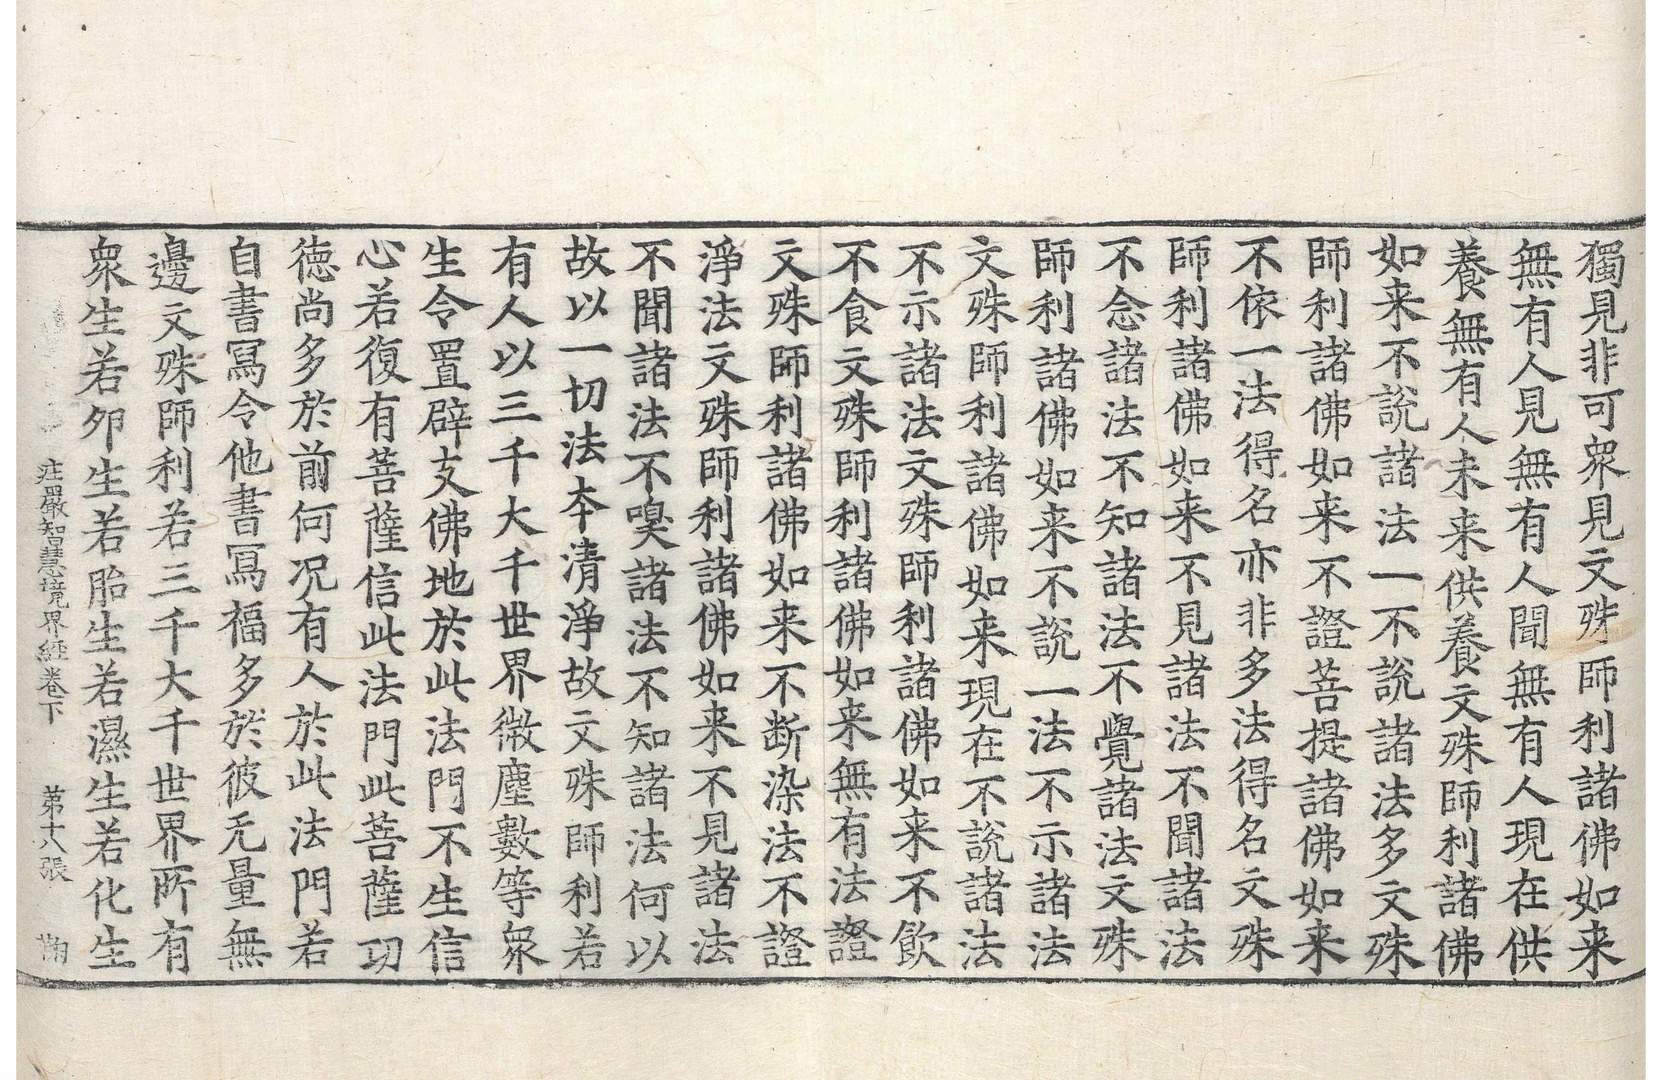 獨見非可衆見文殊師利諸佛如来
無有人見無有人聞無有人現在供
養無有人未来供養文殊師利諸佛
如来不說諸法一不說諸法多文殊
師利諸佛如来不證菩提諸佛如来
不依一法得名亦非多法得名文殊
師利諸佛如来不見諸法不聞諸法
不念諸法不知諸法不覺諸法文殊
師利諸佛如来不說一法不示諸法
文殊師利諸佛如来現在不說諸法
不示諸法文殊師利諸佛如来不飲
不食文殊師利諸佛如来無有法證
文殊師利諸佛如来不断染法不證
淨法文殊師利諸佛如来不見諸法
不聞諸法不嗅諸法不知諸法何以
故以一切法本清淨故文殊師利若
有人以三千大千世界微塵數等衆
生令置辟支佛地於此法門不生信
心若復有菩薩信此法門此菩薩功
徳尚多於前何况有人於此法門若
自書冩令他書冩福多於彼无量無
邊文殊師利若三千大千世界所有
衆生若夘生若胎生若濕生若化生
庄嚴智慧境界經卷下 第十八張 鞠